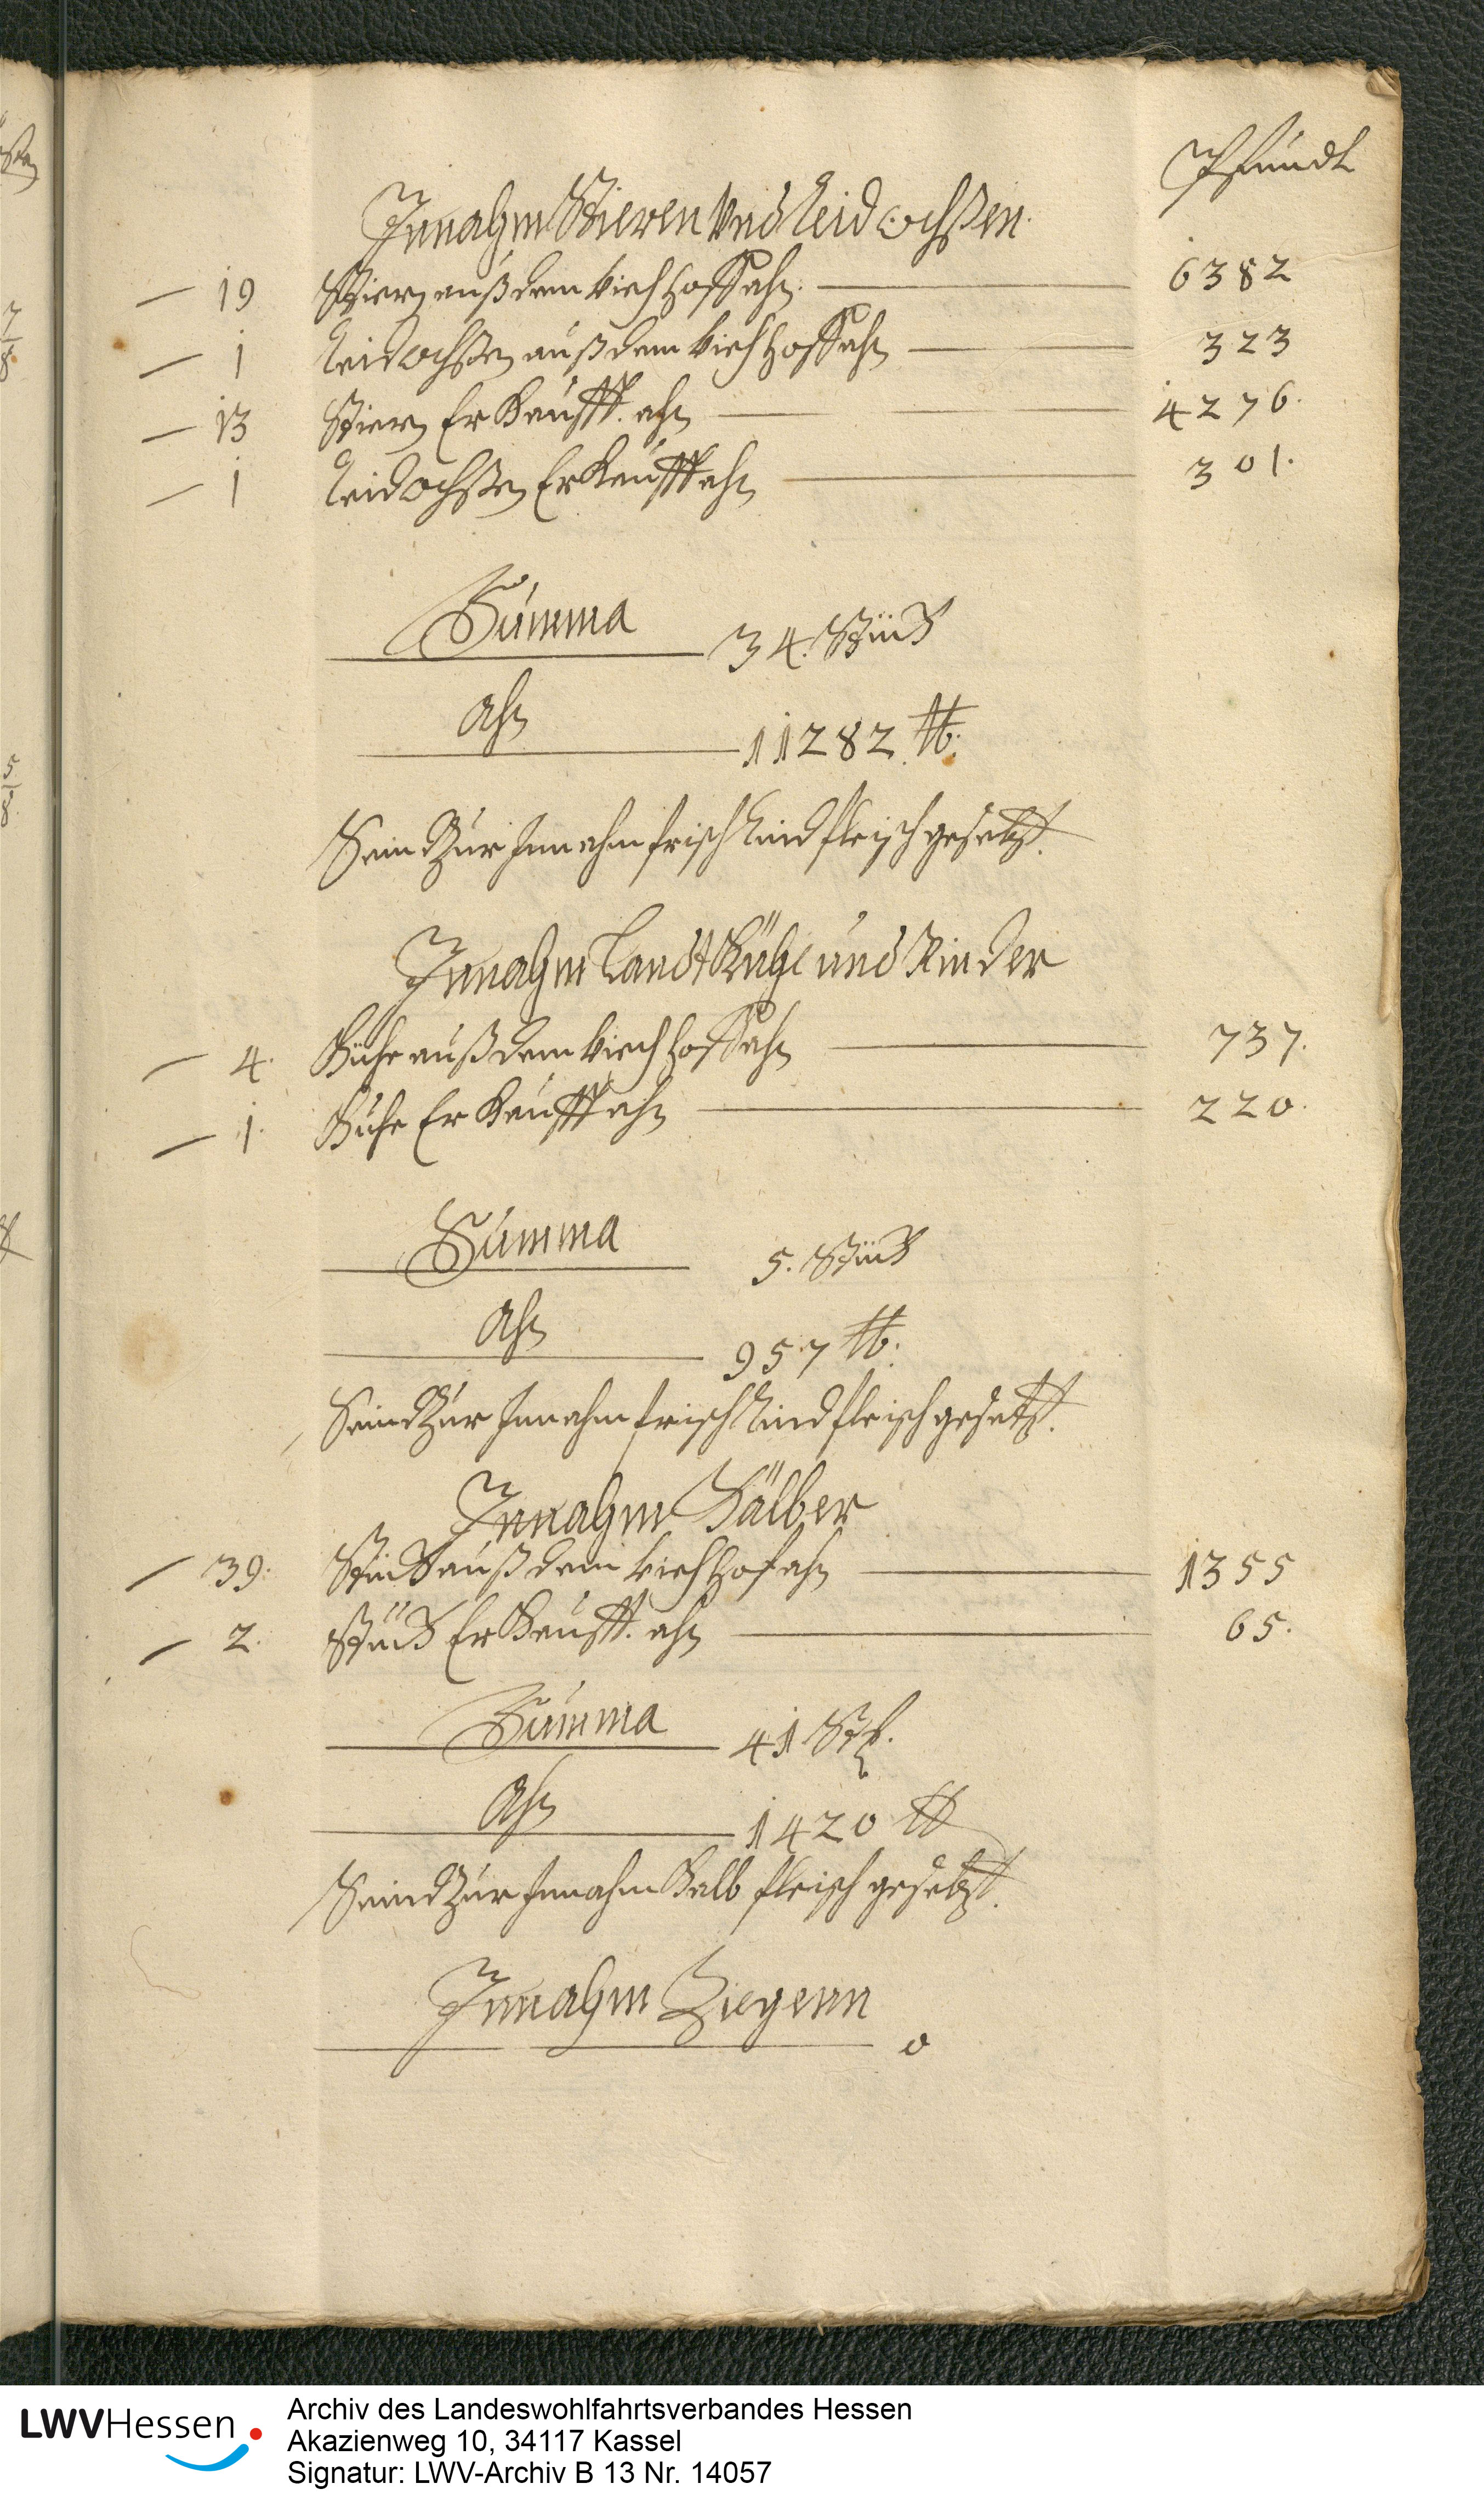 Pfundt
Innahm Stieren und Reid ochßen.
— 19 Stieren auß dem Viehhoff ahn — 6382
— 1 Reidochßen auß dem Viehhoff ahn — 323
— 13 Stieren Er Kaufft. ahn — 4276.
— 1 Reidochßen Er Kaufft ahn — 301.
Summa 34. Stück
Ahn 11282 ℔.
Seind Zur Innahm frisch Rindfleisch gesetzt.
Innahm Landt Kühe und Rinder
— 4. Kühe auß dem Viehhoff ahn — 737.
— 1. Kuhe Er Kaufft ahn — 220.
Summa 5. Stück
Ahn 957 ℔.
Seind Zur Innahm frisch Rindfleisch gesetzt.
Innahm Kälber
— 39. Stück auß dem Viehhof ahn — 1355
— 2. Stück Er Kaufft. ahn — 65.
Summa 41 Stk.
Ahn 1420 ℔
Seind Zur Innahm Kalb fleisch gesetzt.
Innahm Ziegenn
0
LWVHessen
Archiv des Landeswohlfahrtsverbandes Hessen
Akazienweg 10, 34117 Kassel
Signatur: LWV-Archiv B 13 Nr. 14057